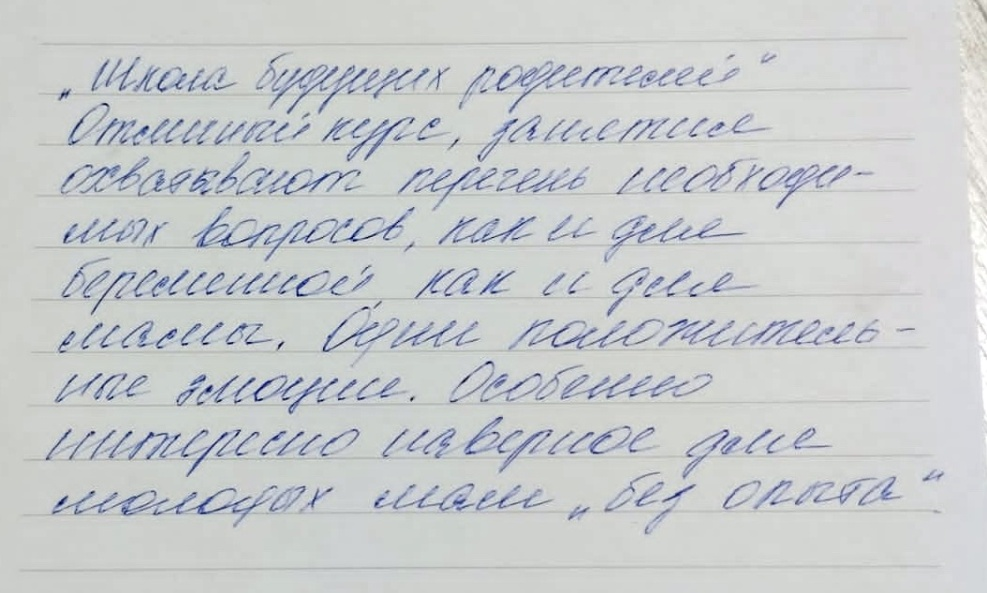 „Школа будущих родителей“
Отличный курс, занятия
охватывают перечень необходи-
мых вопросов, как и для
беременной, как и для
мамы. Одни положитель-
ные эмоции. Особенно
интересно наверное для
молодых мам „без опыта“